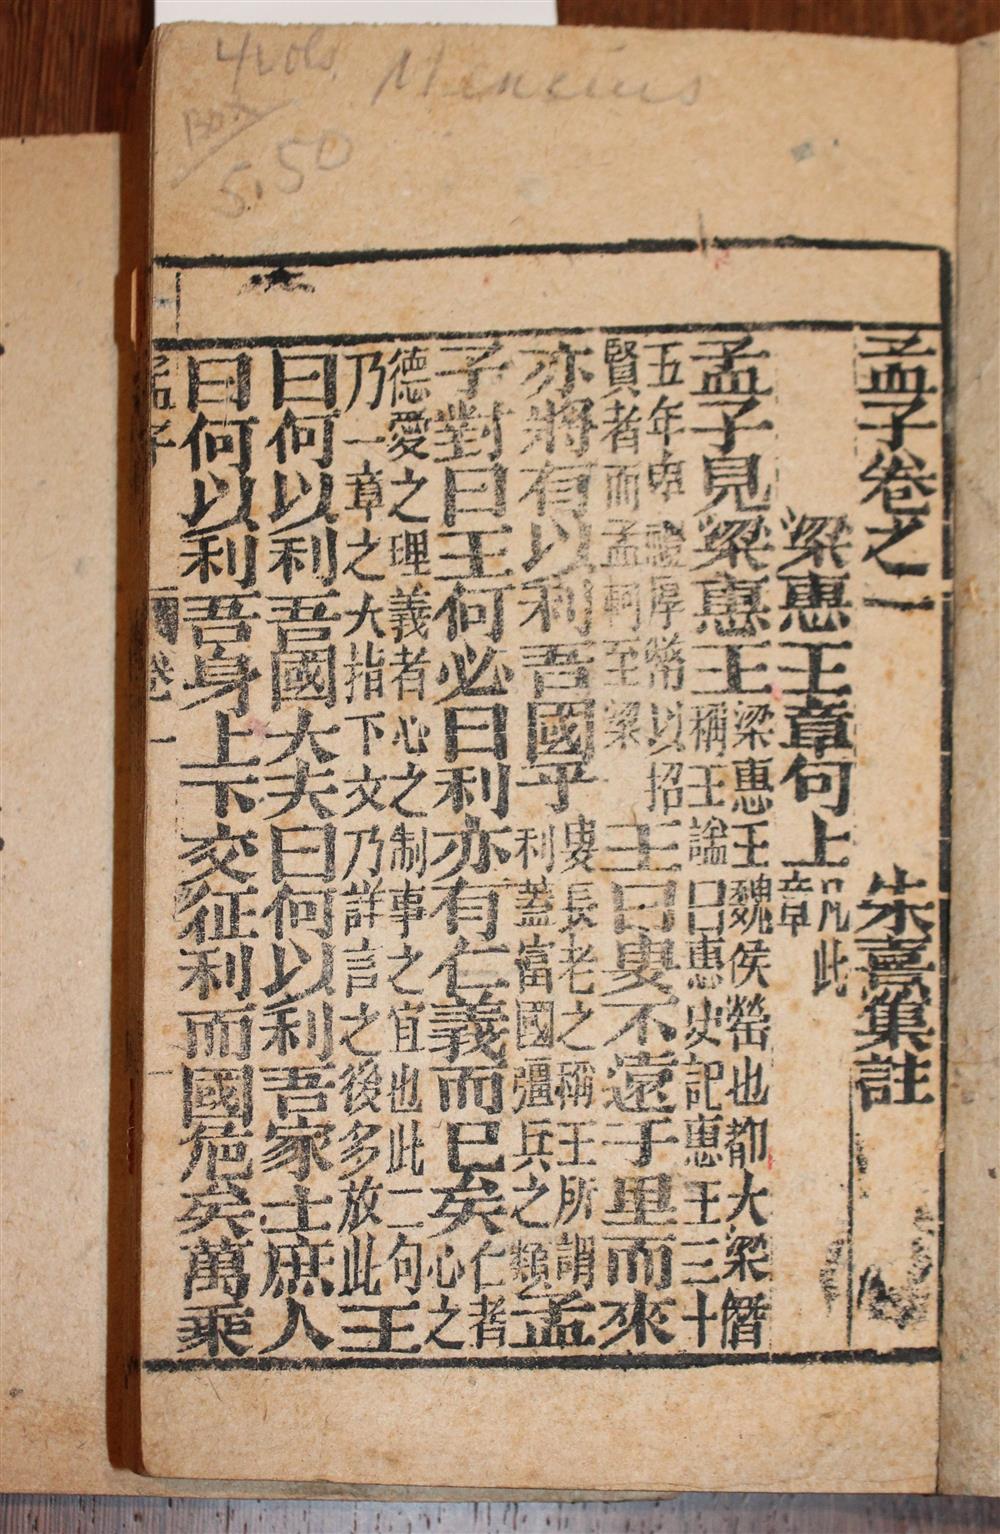 4 vols. Mencius
Box
5.50
孟子卷之一 朱熹集註
梁惠王章句上 凡此
章
孟子見梁惠王 梁惠王魏侯罃也都大梁僭
稱王謚曰惠史記惠王三十
五年卑禮厚幣以招
賢者而孟軻至梁 王曰叟不遠千里而來
亦將有以利吾國乎 叟長老之稱王所謂
利蓋富國彊兵之類 孟
子對曰王何必曰利亦有仁義而已矣 仁者
心之
德愛之理義者心之制事之宜也此二句
乃一章之大指下文乃詳言之後多放此 王
曰何以利吾國大夫曰何以利吾家士庶人
曰何以利吾身上下交征利而國危矣萬乘
孟子 卷一 一